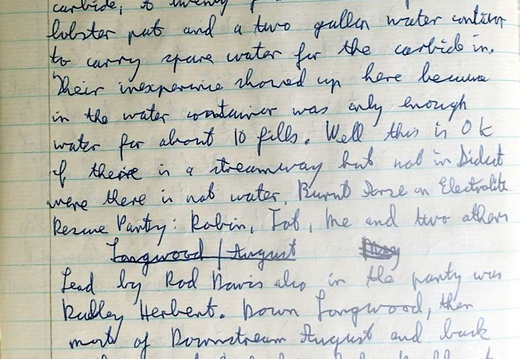 carbide, to twenty
lobster pot and a two gallon water container
to carry spare water for the carbide in.
Their inexperience showed up here because
in the water container was only enough
water for about 10 fills. Well this is OK
if there is a streamway but not in Didcot
were there is not water. Burnt Arse on Electrolite
Rescue Party: Robin, Tob, Me and two others
Longwood / August
Lead by Rod Davis also in the party was
Dudley Herbert. Down Longwood, then
most of Downstream August and back